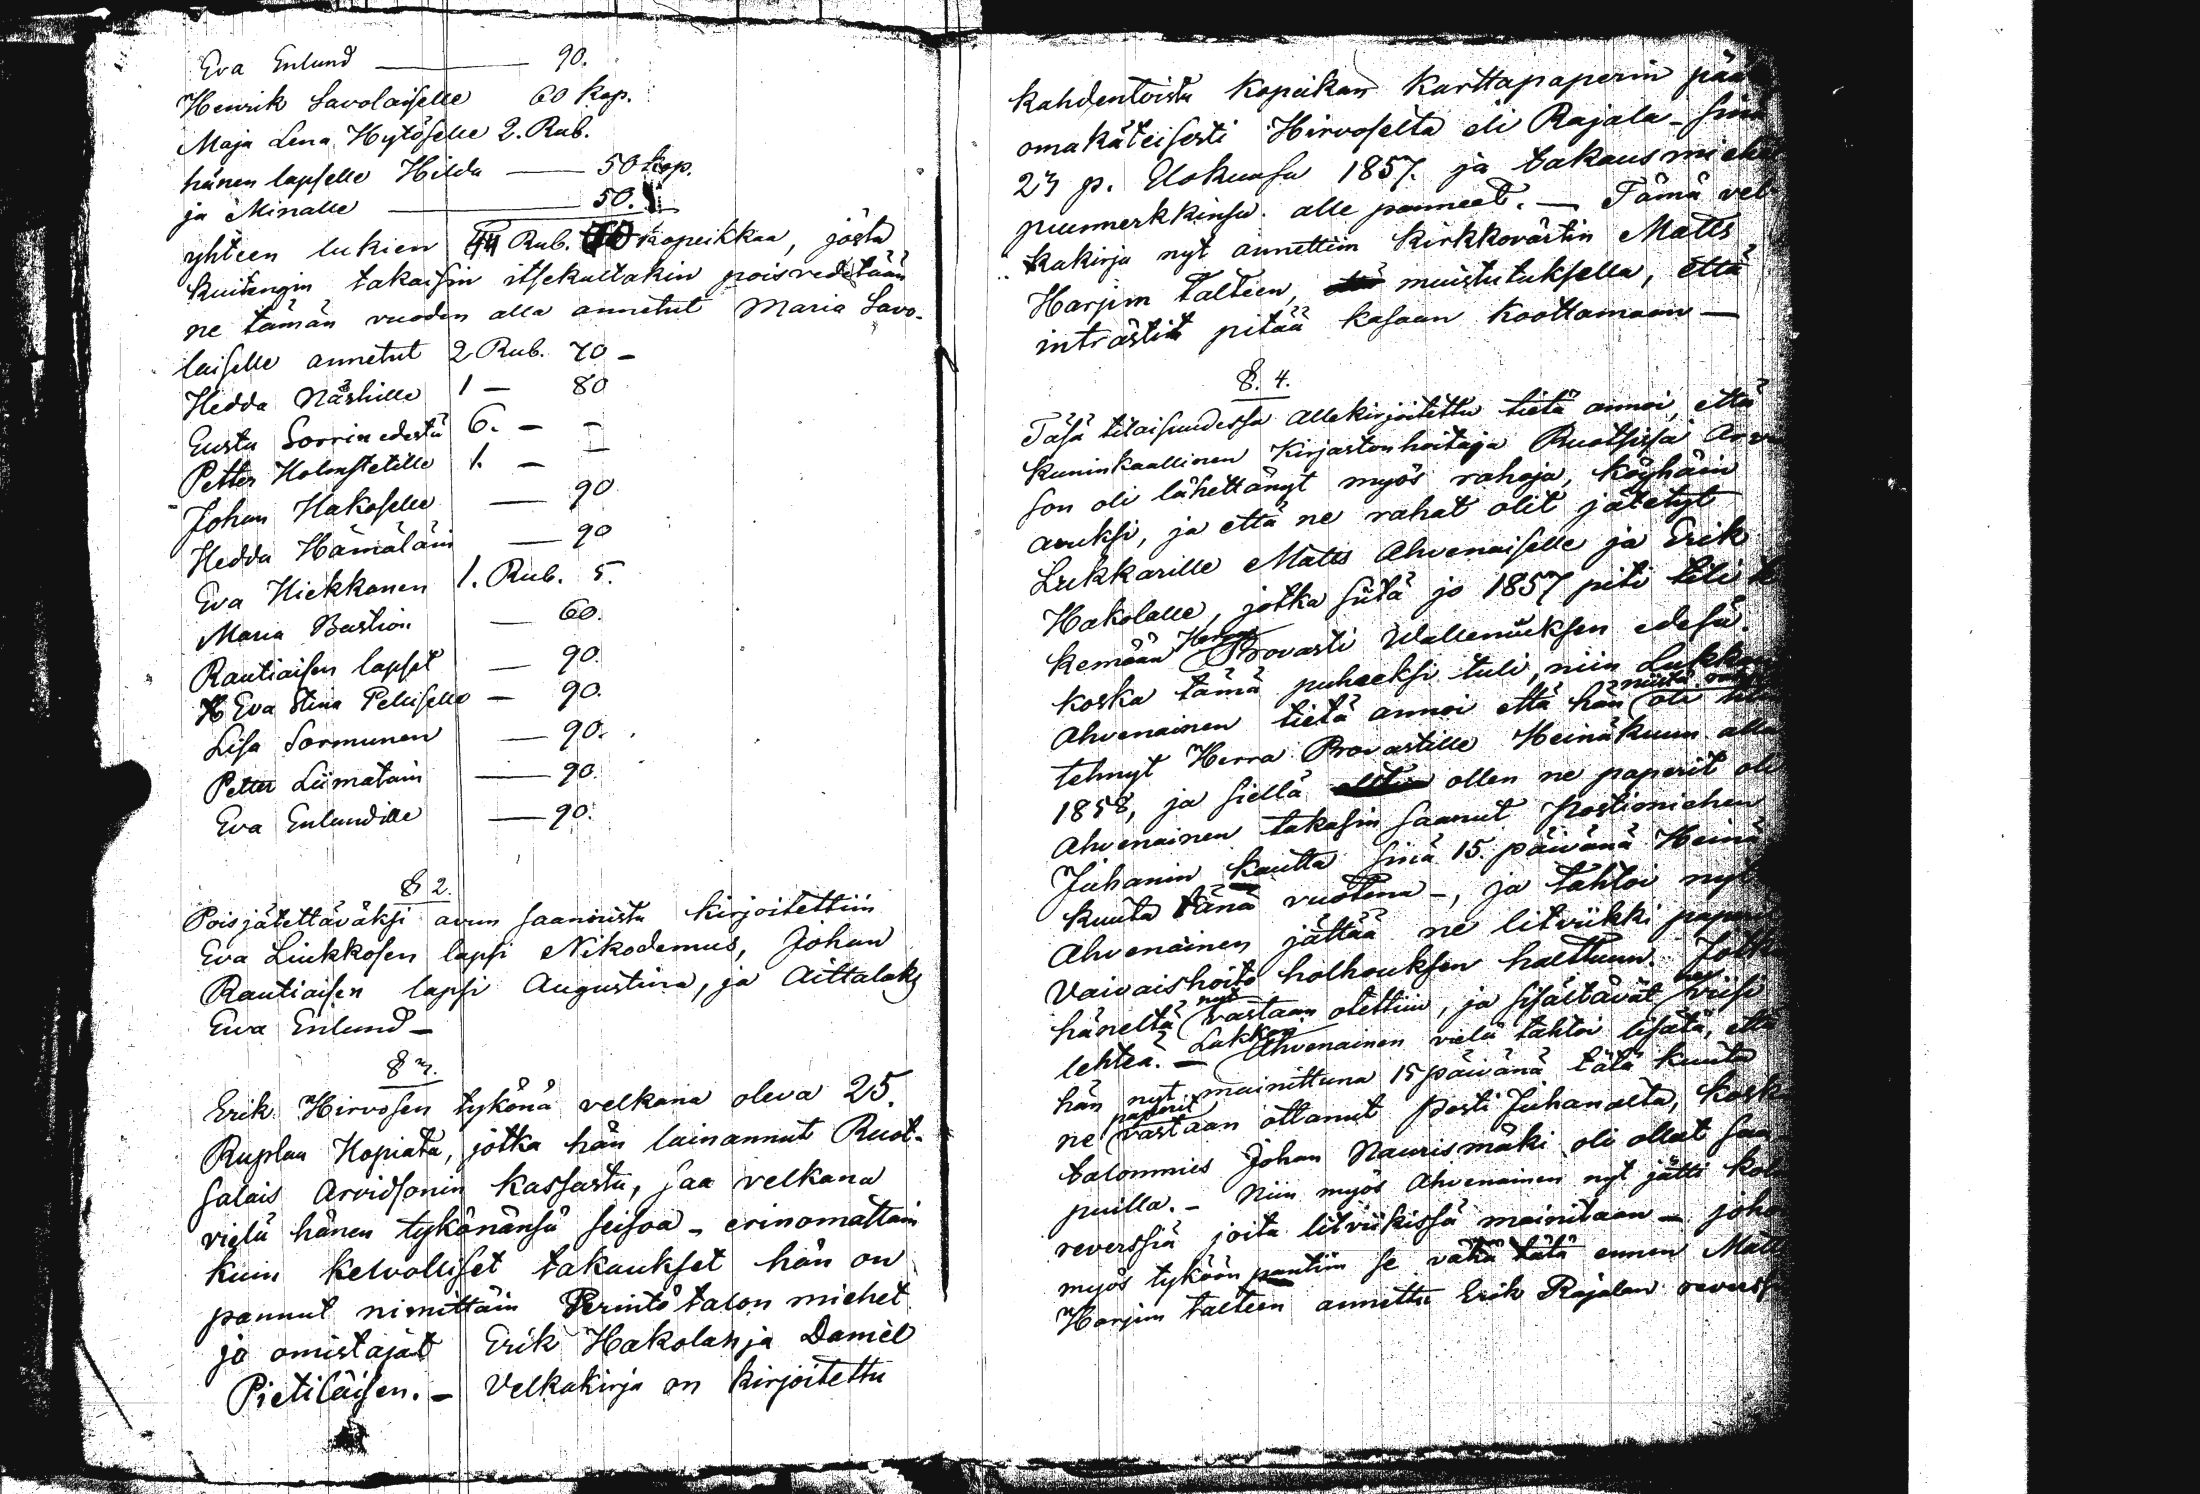 Eva Enlund — 90.
Henrik Savolaiselle 60 Kop.
Maja Lena Hytöselle 2. Rub.
hänen lapselle Hilda — 50 kop.
ja Minalle — 50.
yhteen lukien 44 Rub. kopeikkaa, josta
kuitengin takaisin itsekultakin poisvedetään
ne tämän vuoden alla annetut Maria Savo-
laiselle annetut 2 Rub. 70 –
Hedda Nåshille 1 – 80
Gusta Sorrin edestä 6. – –
Petter Holmstetille 1. – –
Johan Hakoselle — 90
Hedda Hämäläin — 90
Eva Hiekkanen 1. Rub. 5.
Maria Bastion — 60.
Rautiaisen lapset — 90.
Eva Stina Pelliselle – 90.
Lisa Sormunen — 90.
Petter Liimatain — 90.
Eva Enlundille — 90.
§ 2.
Poisjätettäväksi avun saannista kirjoitettiin
Eva Liukkosen lapsi Nikodemus, Johan
Rautiaisen lapsi Augustina, ja Aittalaks
Ewa Enlund –
§ 3.
Erik Hirvosen tykönä velkana oleva 25.
Ruplaa Hopiata, jotka hän lainannut Ruot-
salais Arvidsonin kassasta, saa velkana
vielä hänen tykönänsä seisoa – erinomattain
kuin kelvolliset takaukset hän on
pannut nimittäin Perintö talon miehet
ja omistajat Erik Hakolan ja Daniel
Pietiläisen. – Velkakirja on kirjoitettu
kahdentoista kopeikan karttapaperin pää
omakäteisesti Hirvoselta eli Rajala – sinä
23 p. Elokuusa 1857. ja takausmiehe
puumerkkinsä alle panneet. — Tämä vel
kakirja nyt annettiin kirkkovärtin Matts
Harjun talteen, muistutuksella, että
inträstit pitää kasaan koottamaan —
§. 4.
Täsä tilaisuudessa allekirjoitettu tietä annoi, että
Kuninkaallinen Kirjastonhoitaja Ruotsissa Arvi
son oli lähettänyt myös rahoja, köyhäin
avuksi, ja että ne rahat olit jätetyt
Lukkarille Matts Ahvenaiselle ja Erik
Hakolalle, jotka siitä jo 1857 piti tili te
kemään Herra Provasti Walleniuksen edesä.
koska tämä puheeksi tuli, niin Lukkari
Ahvenainen tietä annoi että hän niistä oli tilin
tehnyt Herra Provastille Heinäkuun alla
1858, ja siellä ollen ne paperit oli
Ahvenainen takasin saanut Postimiehen
Juhanin kautta sinä 15. päivänä Heinä
kuuta tänä vuotena –, ja tahtoi nyt
Ahvenainen jättää ne litviikki paperit
Vaivaishoito holhouksen halttuun. Jotka
häneltä nyt vastaan otettiin, ja sisältävät viisi
lehteä. – Lukkari Ahvenainen vielä tahtoi lisätä, että
hän nyt mainittuna 15 päivänä tätä kuuta
ne paperit vastaan ottanut Posti Juhanalta, kosk
talonmies Johan Naurismäki oli ollut saa
puilla. – Niin myös Ahvenainen nyt jätti kol
reverssiä joita litviikissä mainitaan – joho
myös tyköön pantiin se vähä tätä ennen Matts
Harjun talteen annettu Erik Rajalan reverss